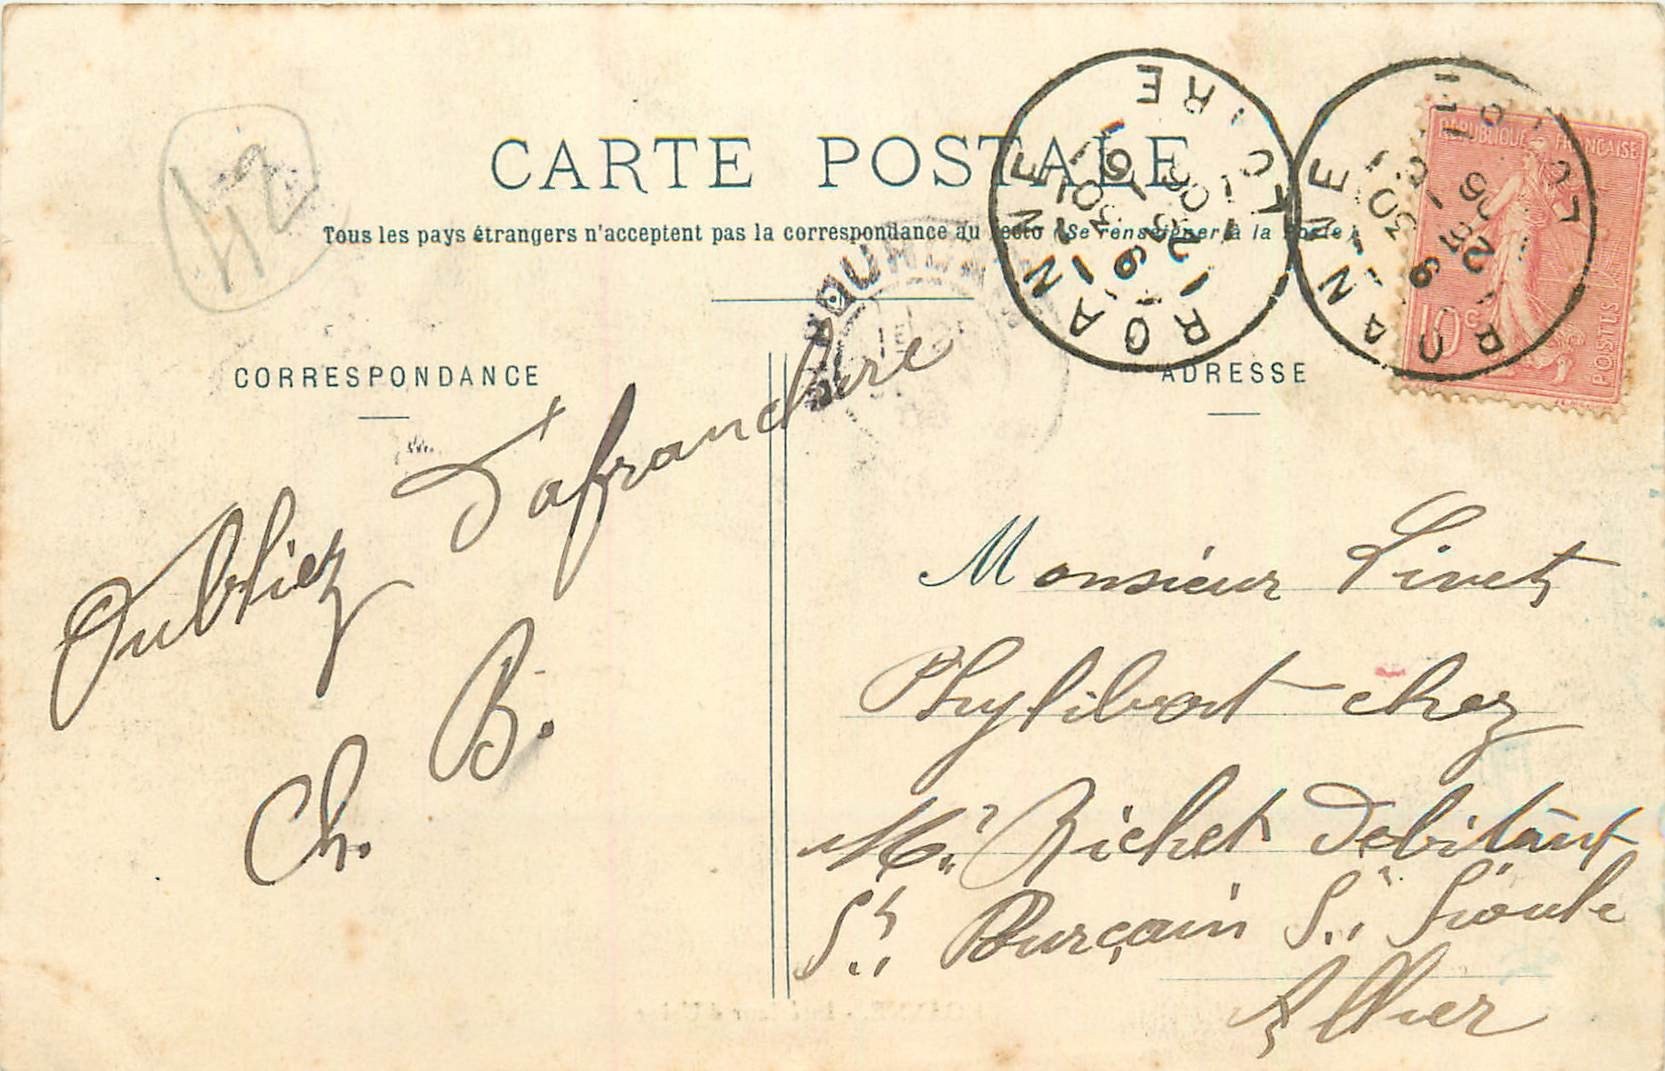 42
CARTE POSTALE
Tous les pays étrangers n'acceptent pas la correspondance au recto (Se renseigner à la Poste)
ROANNE LOIRE
ROANNE LOIRE
RÉPUBLIQUE FRANÇAISE
10c
POSTES
CORRESPONDANCE
ADRESSE
Oubliez d'afranchire
Ch. B.
Monsieur Livet
Phylibert chez
Mr. Richet Debitant
St. Pourçain S. Sioule
Allier